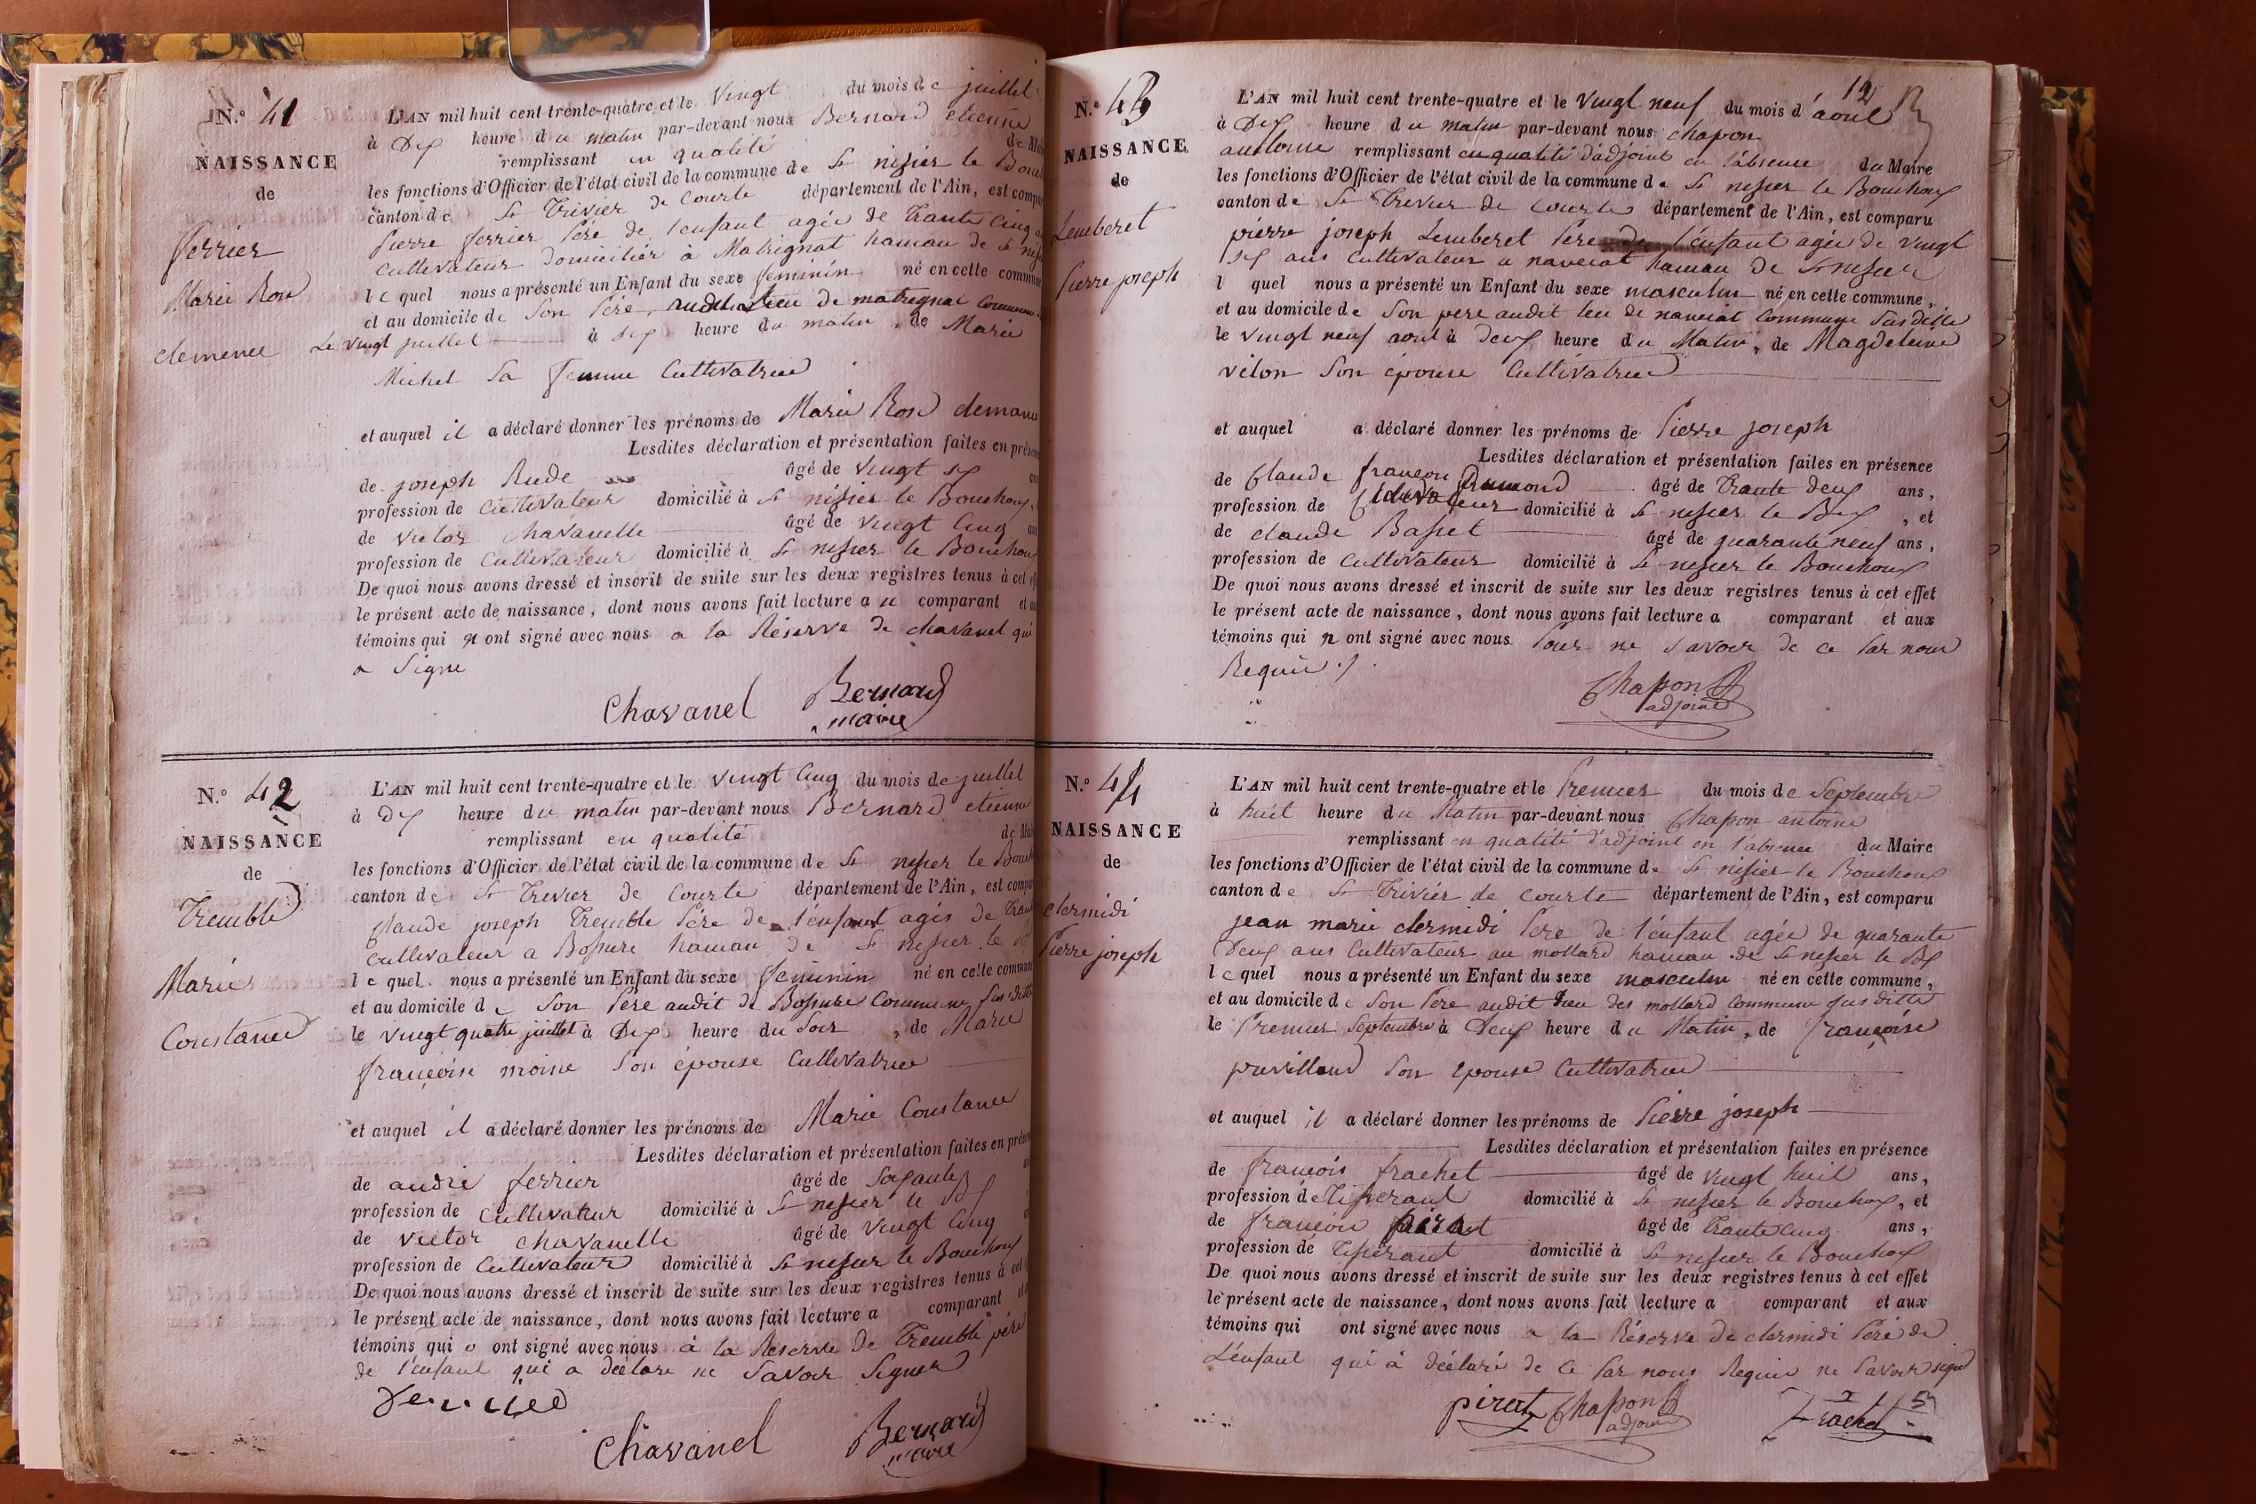 N.° 41
NAISSANCE
de
ferrier
Marie Rose
clemence
L'AN mil huit cent trente-quatre et le Vingt du mois de juillet
à Dix heure du matin par-devant nous Bernard etienne
remplissant en qualité de
les fonctions d'Officier de l'état civil de la commune de St nisier le
canton de St Trivier de Courte département de l'Ain, est
pierre ferrier père de l'enfant agée de trante Cinq
Cultivateur domicilier à Matrignat hamau de St
le quel nous a présenté un Enfant du sexe feminin né en cette
et au domicile de Son père, audit lieu de matrignat Commune
Le vingt juillet à six heure du matin, de Marie
Michel Sa femme Cultivatrice
et auquel il a déclaré donner les prénoms de Marie Rose
Lesdites déclaration et présentation faites en
de joseph Rude âgé de vingt six
profession de Cultivateur domicilié à St nisier le Bouchoux,
de victor chavanelle âgé de vingt Cinq
profession de Cultivateur domicilié à St nisier le Bouchoux
De quoi nous avons dressé et inscrit de suite sur les deux registres tenus à cet
le présent acte de naissance, dont nous avons fait lecture au comparant et
témoins qui n ont signé avec nous a la Réserve de chavanel qui
a Signe
Chavanel Bernard
maire
N.° 42
NAISSANCE
de
Tremble
Marie
Constance
L'AN mil huit cent trente-quatre et le vingt Cinq du mois de juillet
à Dix heure du matin par-devant nous Bernard etienne
remplissant en qualité de
les fonctions d'Officier de l'état civil de la commune de St nisier le
canton de St Trivier de Courte département de l'Ain, est
Claude joseph Tremble père de l'enfant agés de
Cultivateur a Bossure hamau de St nisier le
le quel nous a présenté un Enfant du sexe feminin né en cette
et au domicile de Son père audit de Bossure Commune Susditte
le vingt quatre juillet à Dix heure du Soir, de Marie
françoise moine Son épouse Cultivatrice
et auquel il a déclaré donner les prénoms de Marie Constance
Lesdites déclaration et présentation faites en
de andré ferrier âgé de Soixante
profession de Cultivateur domicilié à St nisier le Bx
de victor chavanelle âgé de Vingt Cinq
profession de Cultivateur domicilié à St nisier le Bouchoux
De quoi nous avons dressé et inscrit de suite sur les deux registres tenus à cet
le présent acte de naissance, dont nous avons fait lecture a comparant
témoins qui ont signé avec nous à la Réserve de Tremble père
de l'enfant qui a déclare ne Savoir Signer
Chavanel Bernard
maire
12
N.° 43
NAISSANCE
de
Lemberet
Pierre joseph
L'AN mil huit cent trente-quatre et le Vingt neuf du mois d'aout
à Dix heure du matin par-devant nous chapon
antoine remplissant en qualité d'adjoint en l'absence du Maire
les fonctions d'Officier de l'état civil de la commune de St nisier le Bouchoux
canton de St Trivier de Courtes département de l'Ain, est comparu
pierre joseph Lemberet père de l'enfant agée de vingt
six ans Cultivateur a naverat hamau de St nisier
l quel nous a présenté un Enfant du sexe masculin né en cette commune,
et au domicile de Son pere audit lieu de naverat Commune Susditte
le vingt neuf aout à Deux heure du Matin, de Magdeleine
vilon Son épouse Cultivatrice
et auquel a déclaré donner les prénoms de Pierre joseph
Lesdites déclaration et présentation faites en présence
de Claude françois Dumond âgé de trante deux ans,
profession de Cultivateur domicilié à St nisier le Bx, et
de claude Basset âgé de quarante neuf ans,
profession de Cultivateur domicilié à St nisier le Bouchoux
De quoi nous avons dressé et inscrit de suite sur les deux registres tenus à cet effet
le présent acte de naissance, dont nous avons fait lecture a comparant et aux
témoins qui n ont signé avec nous pour ne Savoir de ce par nous
Requis ./.
Chapon
adjoint
N.° 44
NAISSANCE
de
clermidi
Pierre joseph
L'AN mil huit cent trente-quatre et le Premier du mois de Septembre
à huit heure du Matin par-devant nous Chapon antoine
remplissant en qualité d'adjoint en l'absence du Maire
les fonctions d'Officier de l'état civil de la commune de St nisier le Bouchoux
canton de St Trivier de Courte département de l'Ain, est comparu
jean marie clermidi père de l'enfant agée de quarante
Deux ans Cultivateur au mollard hamau de St nisier le Bx
le quel nous a présenté un Enfant du sexe masculin né en cette commune,
et au domicile de Son Pere audit lieu des mollard Commune Susditte
le Premier Septembre à Deux heure du Matin, de françoise
puvilland Son epouse Cultivatrice
et auquel il a déclaré donner les prénoms de Pierre joseph
Lesdites déclaration et présentation faites en présence
de françois frachet âgé de vingt huit ans,
profession de Tisserant domicilié à St nisier le Bouchoux, et
de françois pirat âgé de trante Cinq ans,
profession de Tisserant domicilié à St nisier le Bouchoux
De quoi nous avons dressé et inscrit de suite sur les deux registres tenus à cet effet
le présent acte de naissance, dont nous avons fait lecture a comparant et aux
témoins qui ont signé avec nous a la Réserve de clermidi père de
L'enfant qui à déclaré de ce par nous Requis ne Savoir signé
pirat Chapon Frachet
adjoint